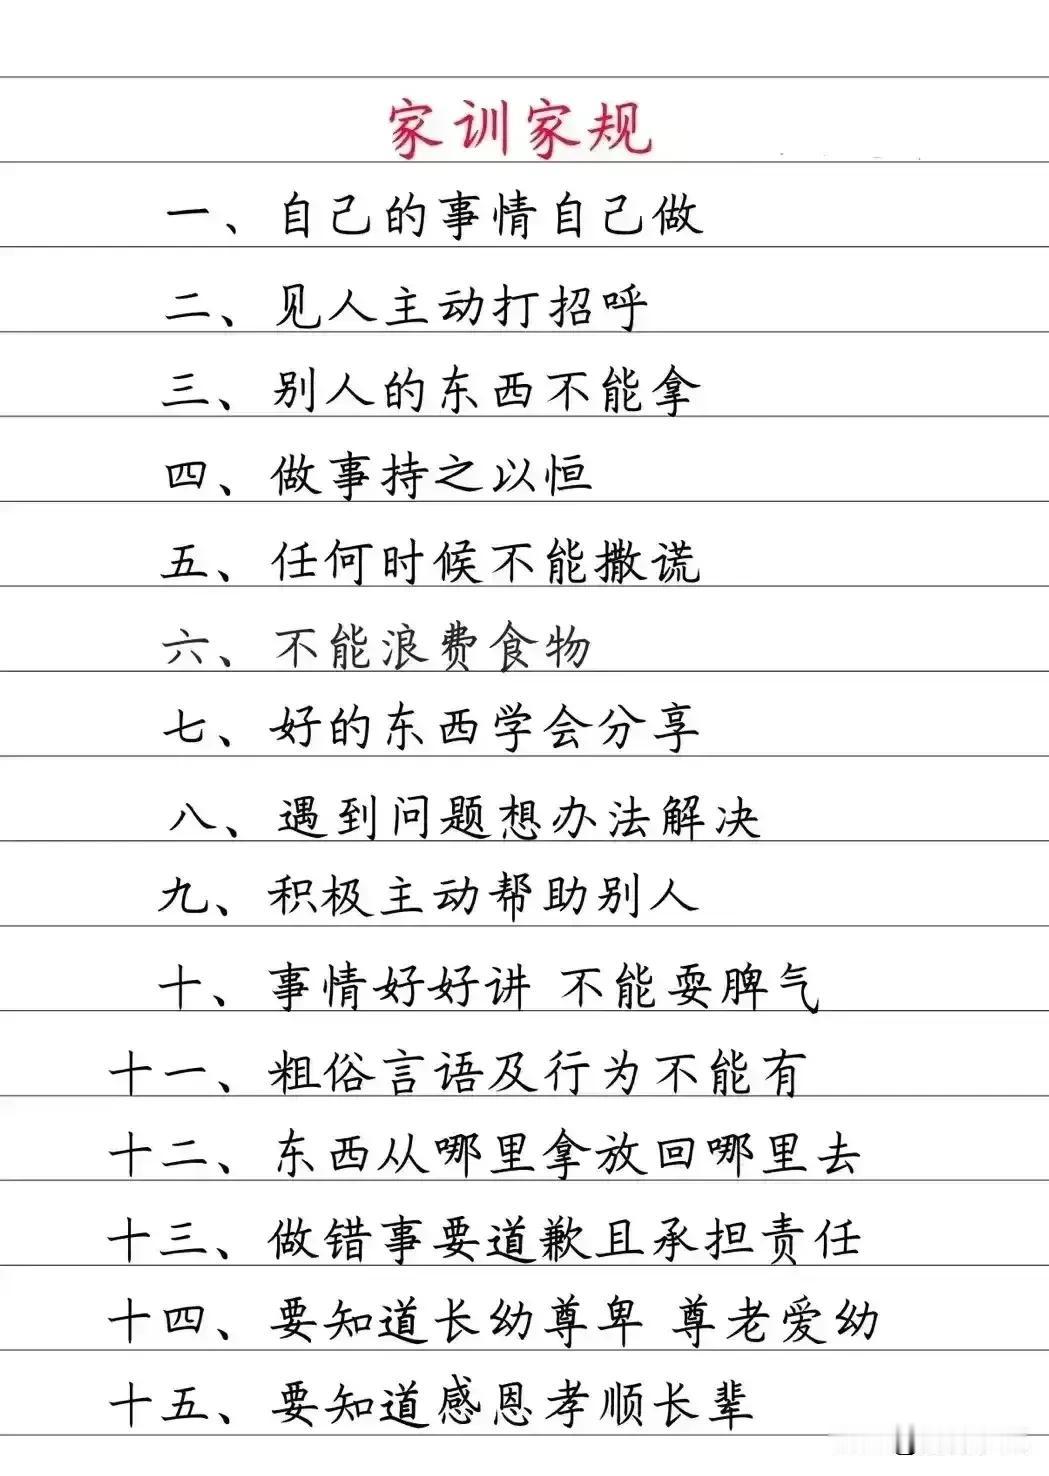 家训家规
一、自己的事情自己做
二、见人主动打招呼
三、别人的东西不能拿
四、做事持之以恒
五、任何时候不能撒谎
六、不能浪费食物
七、好的东西学会分享
八、遇到问题想办法解决
九、积极主动帮助别人
十、事情好好讲 不能耍脾气
十一、粗俗言语及行为不能有
十二、东西从哪里拿放回哪里去
十三、做错事要道歉且承担责任
十四、要知道长幼尊卑 尊老爱幼
十五、要知道感恩孝顺长辈